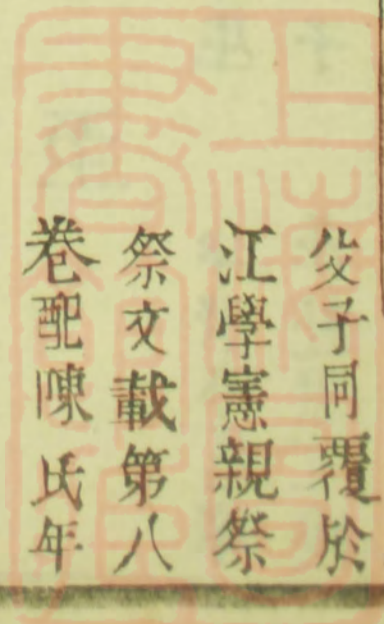 父子同覆於
江學憲親祭
祭文載第八
卷配陳氏年